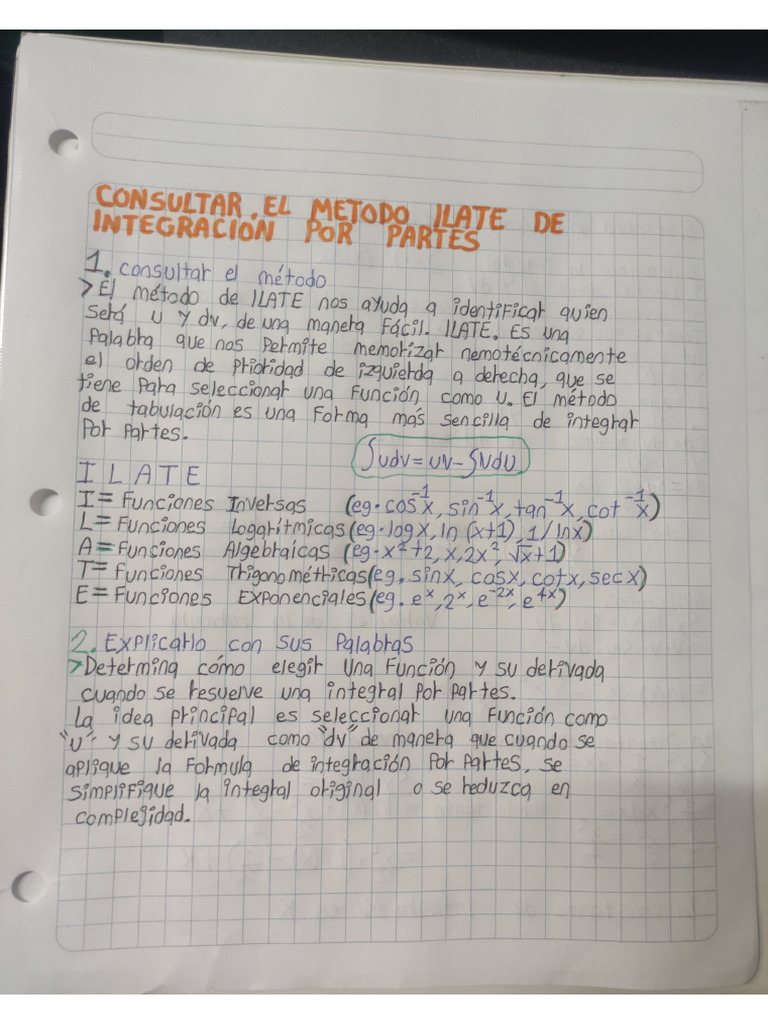 CONSULTAR EL METODO ILATE DE
INTEGRACIÓN POR PARTES
1. consultar el método
> El método de ILATE nos ayuda a identificar quien
será u y dv, de una manera fácil. ILATE. Es una
Palabra que nos Permite memorizar nemotécnicamente
el orden de Prioridad de izquierda a derecha, que se
tiene Para seleccionar una Función como u. El método
de tabulación es una Forma más sencilla de integrar
Por Partes.
∫udv = uv - ∫vdu
I L A T E
I = Funciones Inversas (eg. cos⁻¹x, sin⁻¹x, tan⁻¹x, cot⁻¹x)
L = Funciones Logarítmicas (eg. log x, ln (x+1), 1/ln x)
A = Funciones Algebraícas (eg. x²+2, x, 2x², √x+1)
T = Funciones Trigonométricas (eg. sinx, cosx, cotx, sec x)
E = Funciones Exponenciales (eg. eˣ, 2ˣ, e⁻²ˣ, e⁴ˣ)
2. Explicarlo con sus Palabras
> Determina cómo elegir una Función y su derivada
cuando se resuelve una integral Por Partes.
La idea Principal es seleccionar una Función como
"u" y su derivada como "dv" de manera que cuando se
aplique la Formula de integración Por Partes, se
simplifique la integral original o se reduzca en
complejidad.